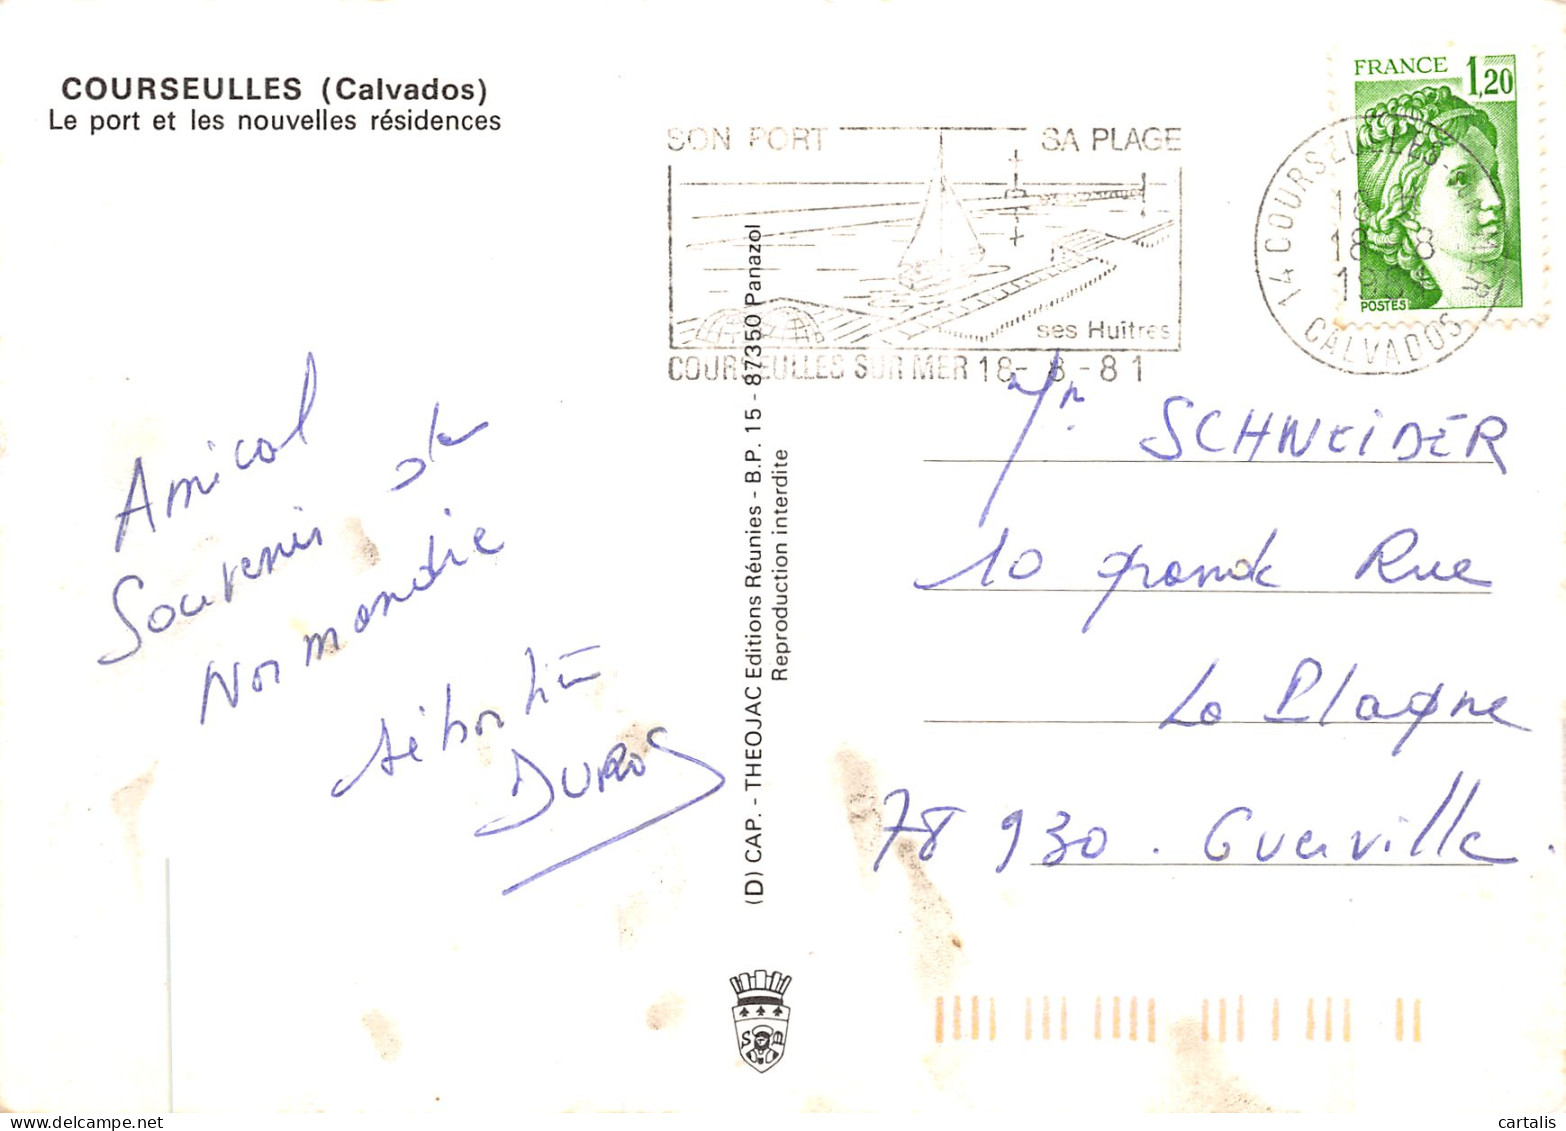 COURSEULLES (Calvados)
Le port et les nouvelles résidences
SON PORT SA PLAGE
ses Huîtres
COURSEULLES SUR MER 18-8-81
FRANCE 1,20
POSTES
14 COURSEULLES-SUR-MER
18-8
CALVADOS
Amical
Souvenir de
Normandie
Sébastien
DUROS
(D) CAP. - THEOJAC Editions Réunies - B.P. 15 - 87350 Panazol
Reproduction interdite
Mr SCHNEIDER
10 grande Rue
La Plagne
78 930 . Guerville .
cartalis
www.delcampe.net